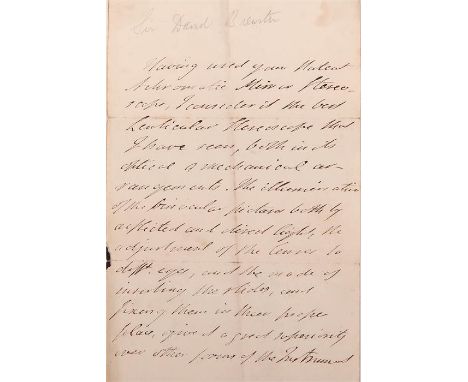 Sir David Brewster
Having used your Patent
Achromatic Mirror Stereo-
scope, I consider it the best
Lenticular Stereoscope that
I have seen, both in its
optical & mechanical ar-
rangements. The illumination
of the binocular picture both by
reflected and direct light, the
adjustment of the lenses to
diffᵗ eyes, and the mode of
inserting the slides, and
fixing them in their proper
place, give it a great superiority
over other forms of the Instrument